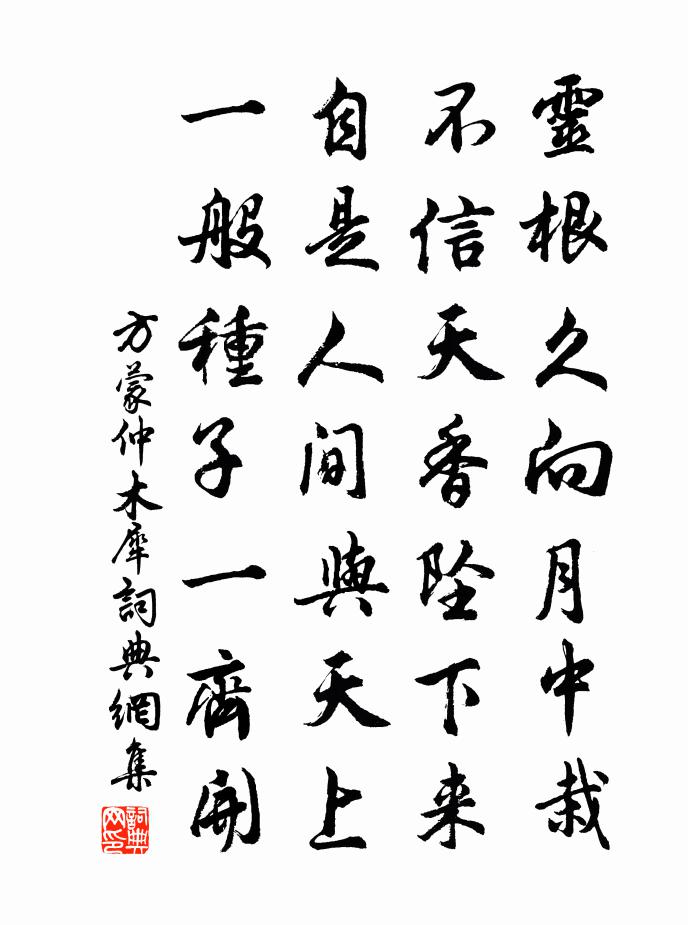 靈根久向月中栽
不信天香墜下来
自是人间與天上
一般種子一齊開
方蒙仲木犀詞典網集
詞典网印